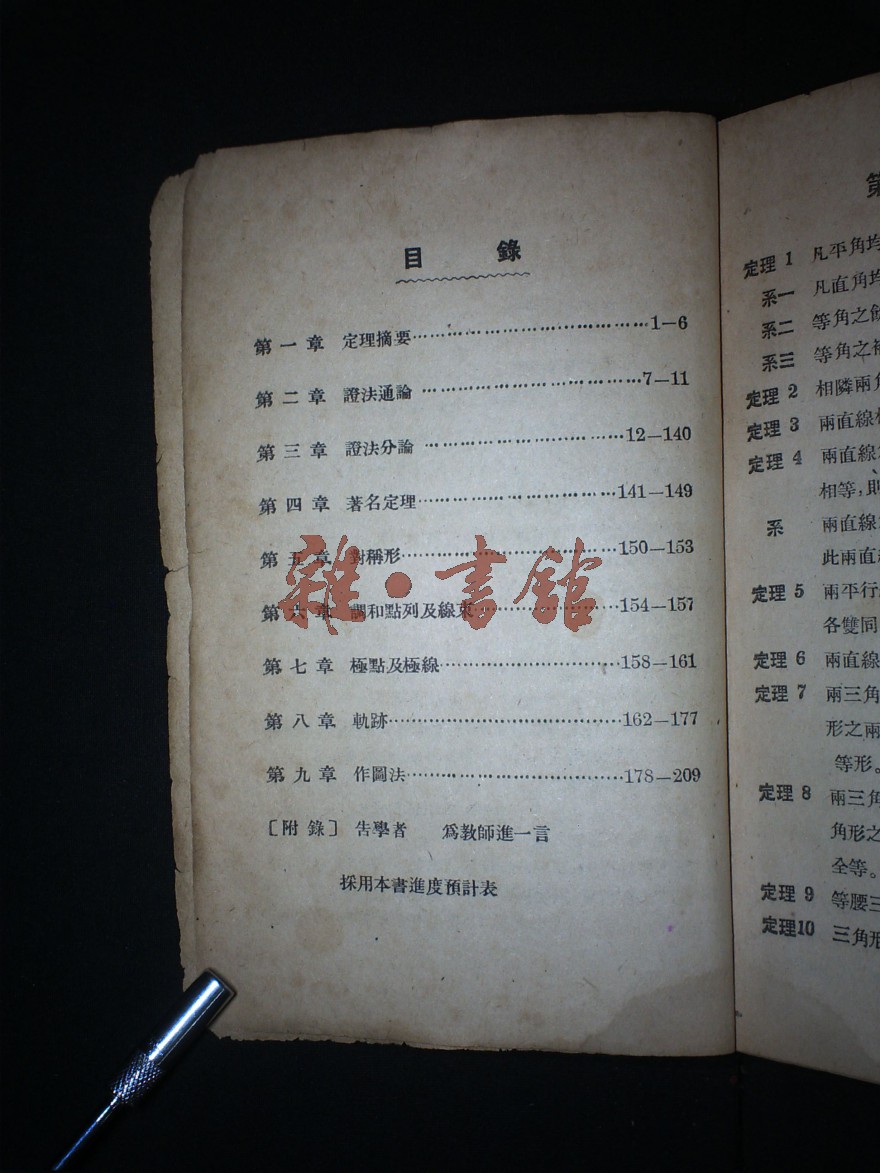 目 錄
第一章 定理摘要………………………………1—6
第二章 證法通論………………………………7—11
第三章 證法分論………………………………12—140
第四章 著名定理………………………………141—149
第五章 對稱形………………………………150—153
第六章 調和點列及線束………………………154—157
第七章 極點及極線……………………………158—161
第八章 軌跡………………………………162—177
第九章 作圖法………………………………178—209
〔附錄〕 告學者 爲教師進一言
採用本書進度預計表
雜·書館
定理 1 凡平角均
系一 凡直角均
系二 等角之餘
系三 等角之補
定理 2 相隣兩角
定理 3 兩直線相
定理 4 兩直線
相等，則
系 兩直線
此兩直線
定理 5 兩平行
各雙同
定理 6 兩直線
定理 7 兩三角
形之兩
等形。
定理 8 兩三角
角形之
全等。
定理 9 等腰三
定理10 三角形